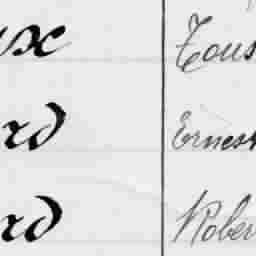 ux Tous
rd Ernest
rd Rober